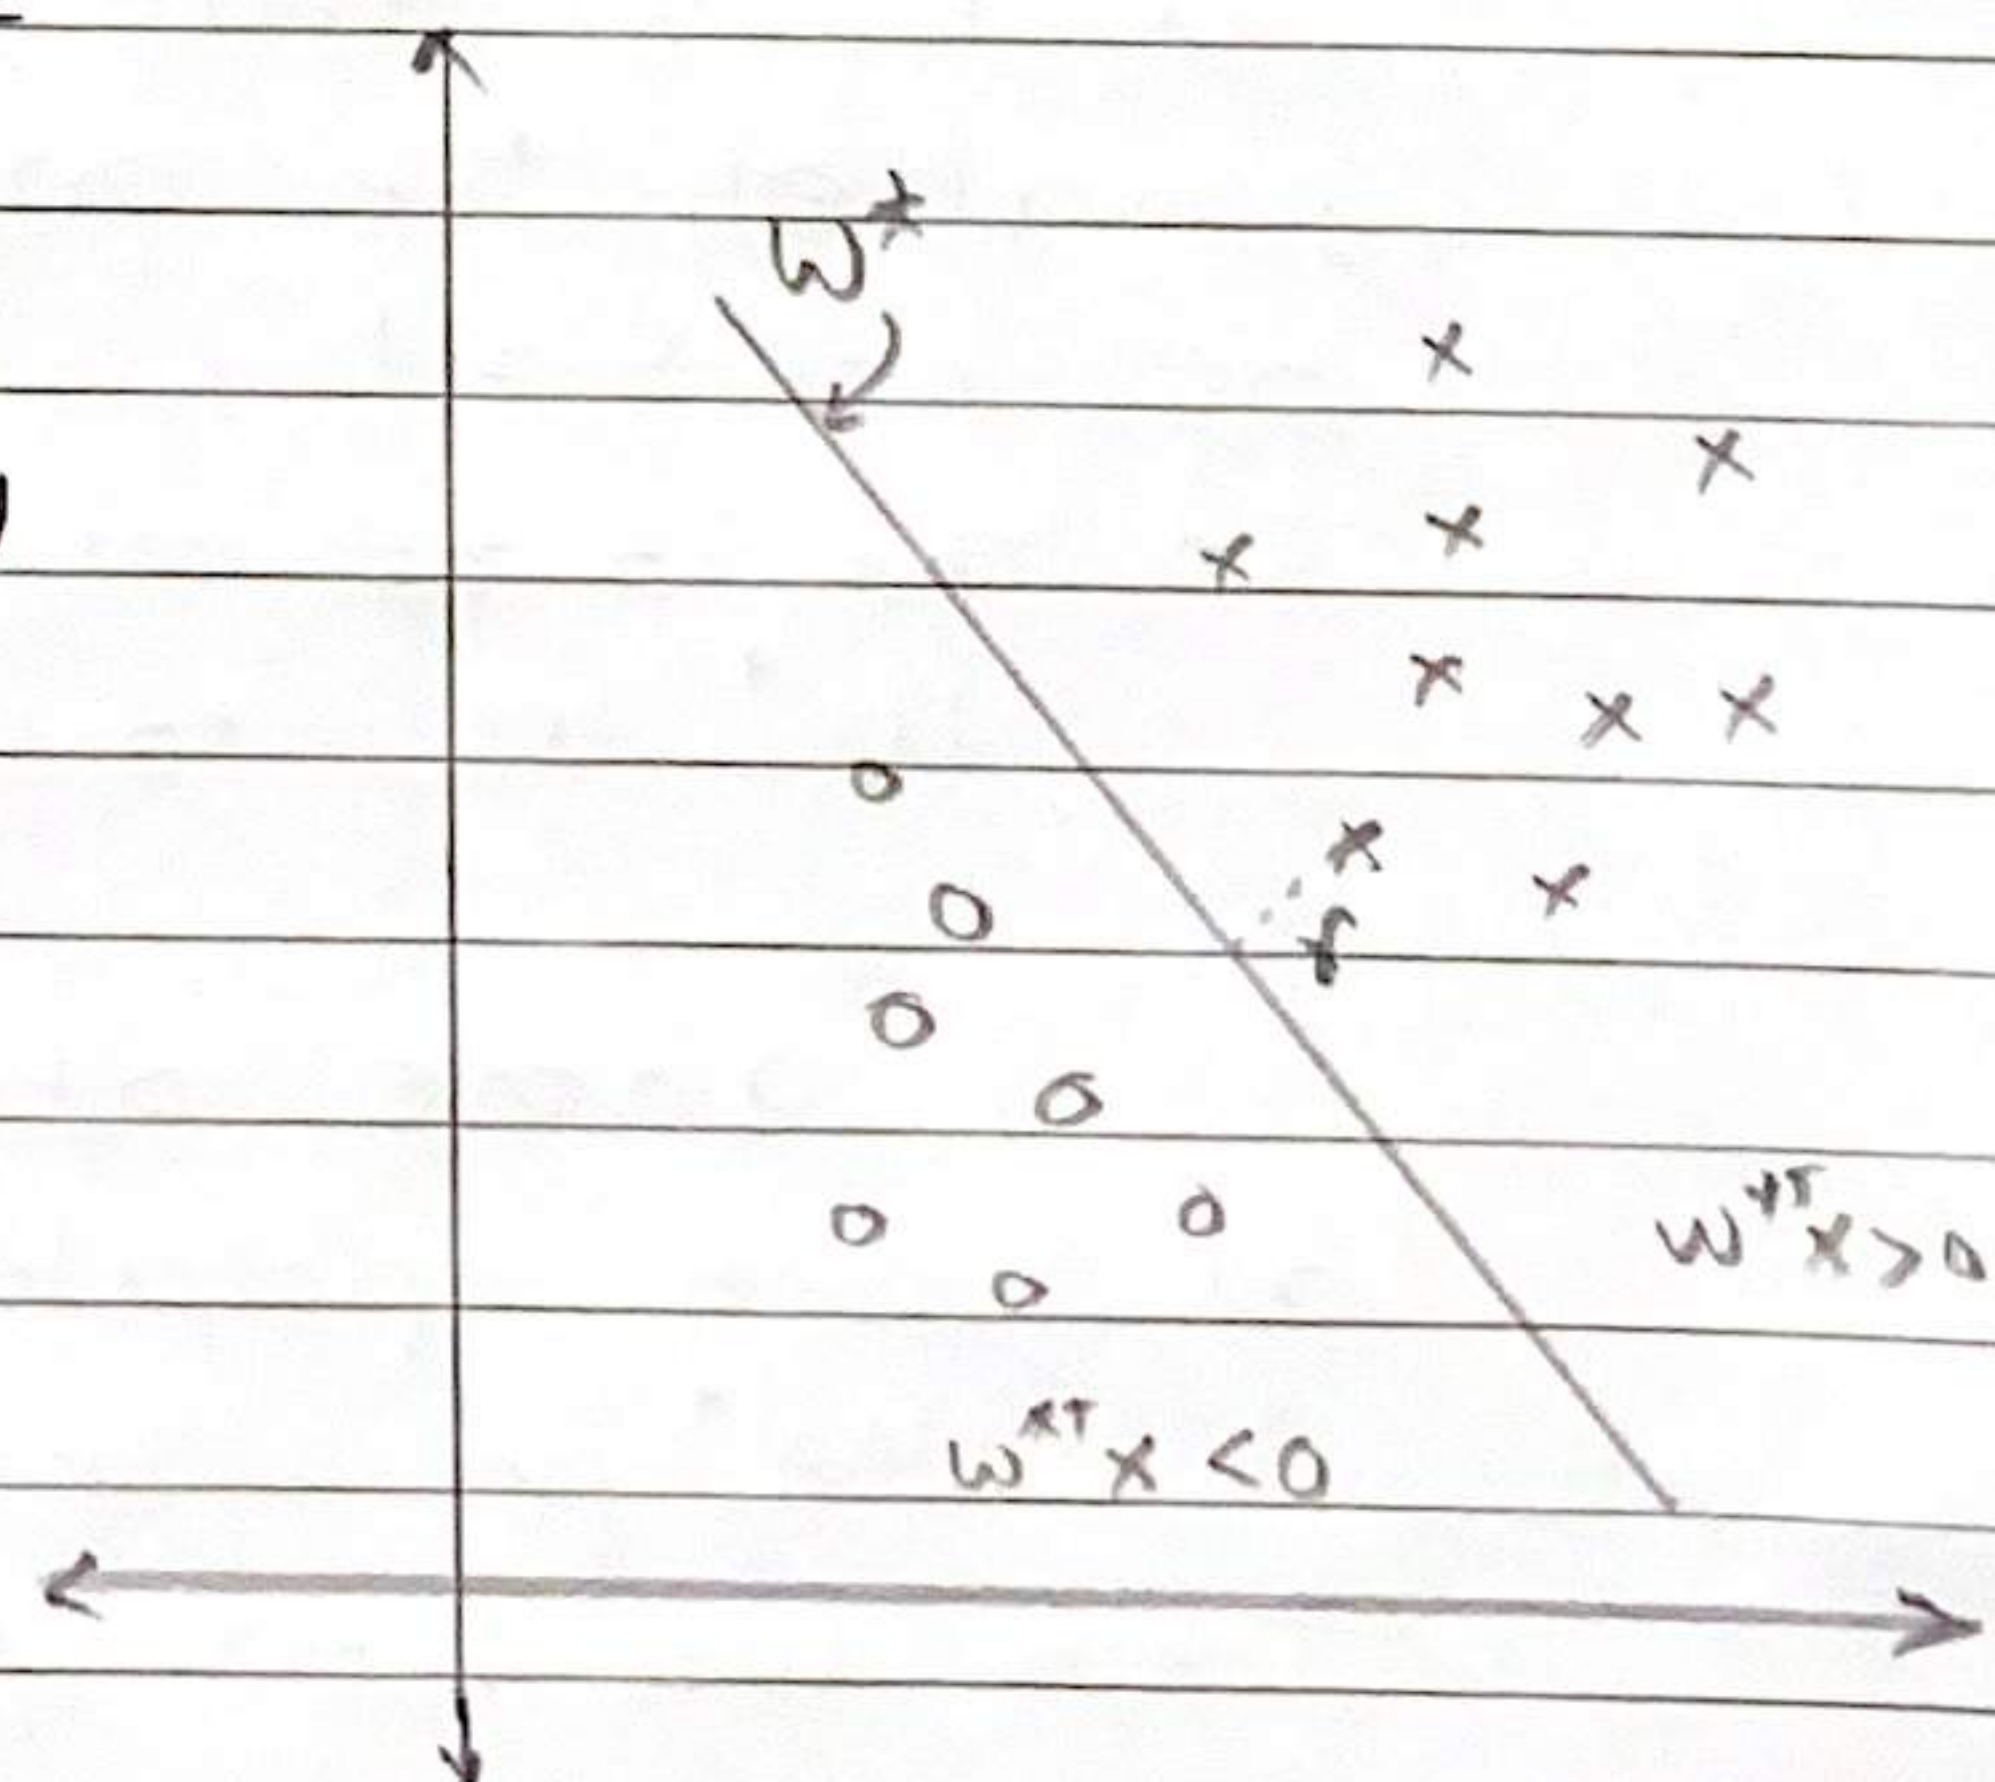 w*
w*ᵀx > 0
w*ᵀx < 0